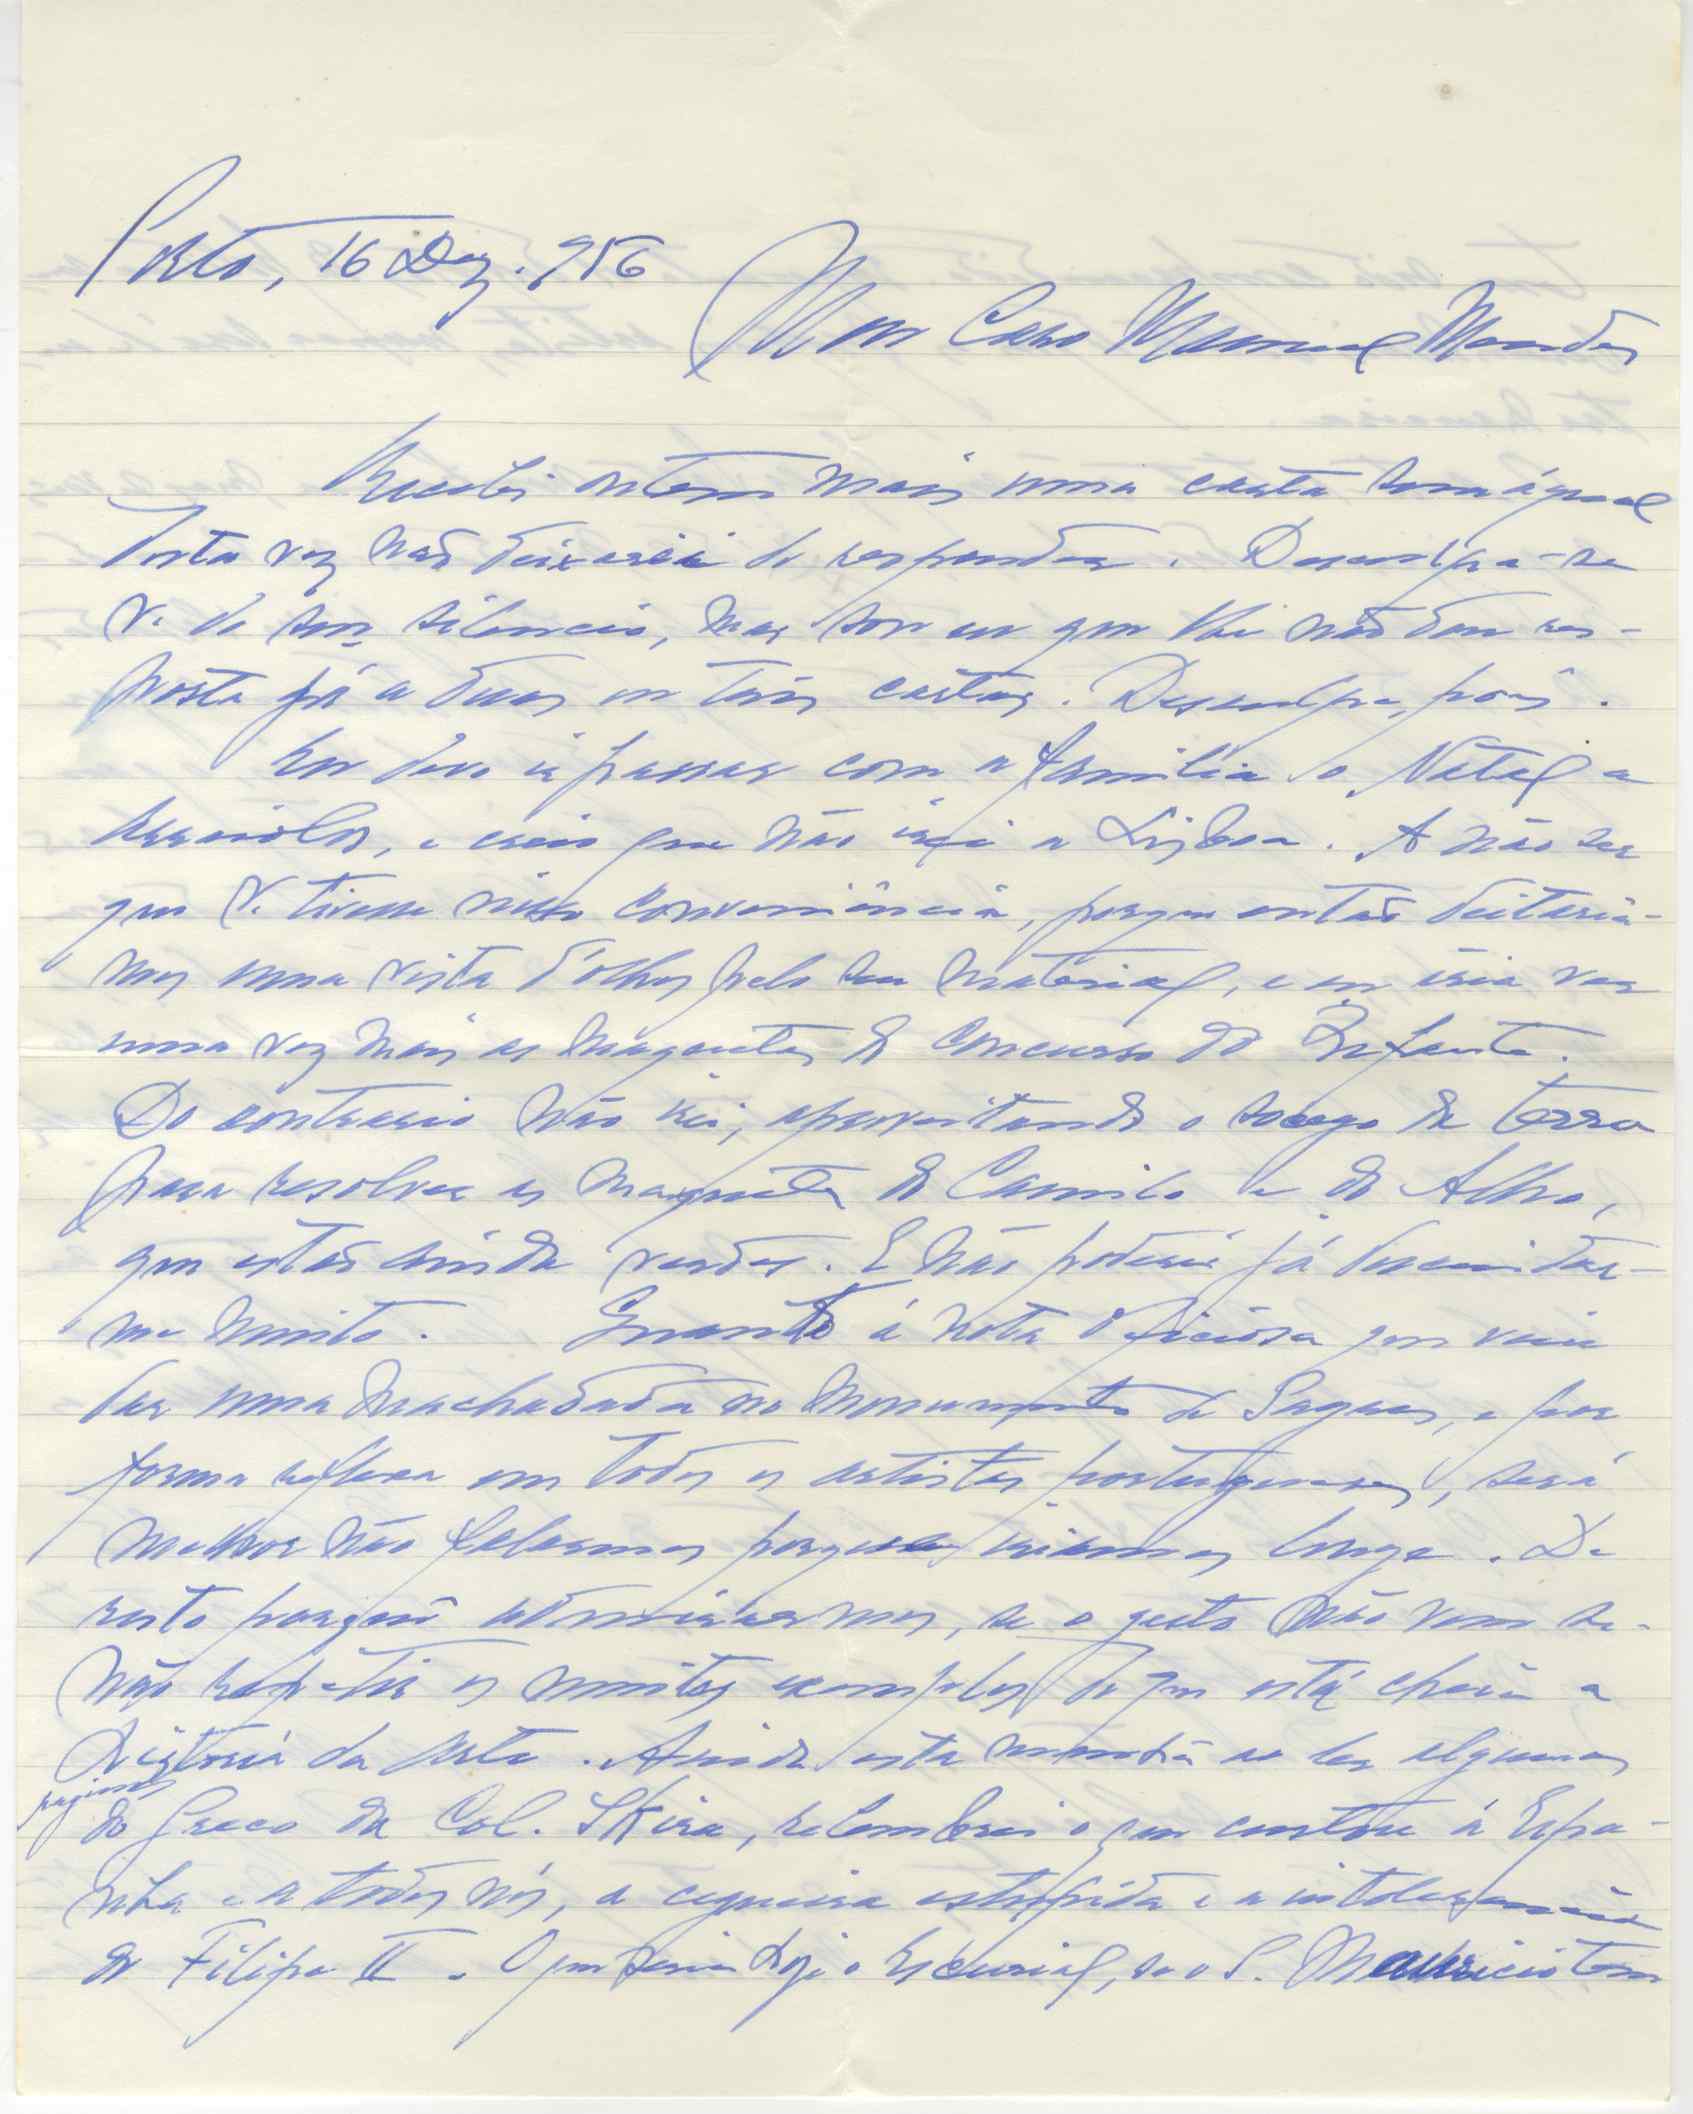 Porto, 16 Dez. 956
Meu Caro Manuel Mendes
Recebi ontem mais uma carta sua á qual
desta vez não deixarei de responder. Desculpa-se
V. do seu silencio, mas sou eu que lhe não dou res-
posta já a duas ou três cartas. Desculpe, pois.
Eu devo ir passar com a familia o Natal a
Arraiolos, e creio que não irei a Lisboa. A não ser
que V. tivesse nisso conveniência, porque então deitaria-
mos uma vista d'olhos pelo seu material, e eu iria ver
uma vez mais as maquetas do Concurso do Infante.
Do contrario não irei, aproveitando o socego da terra
para resolver as maquetas do Camilo e do Alho,
que estão ainda verdes. E não poderei já descuidar-
me muito. Quanto á nota oficiosa que veiu
dar uma machadada no Monumento de Sagres, e por
forma reflexa em todos os artistas portugueses, será
melhor não falarmos porque iriamos longe. De
resto porquê admirarmos, se o gesto não vem se-
não repetir os muitos exemplos de que está cheia a
História da Arte. Ainda esta manhã ao ler algumas
paginas
do Greco da Col. Skira, relembrei o que custou á Espa-
nha e a todos nós, a cegueira estupida e a intolerancia
de Filipe II. O que seria hoje o Escurial, se o S. Mauricio tem